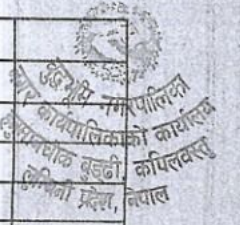 बुद्धभूमि नगरपालिका
नगर कार्यपालिकाको कार्यालय
बुड्ढी, कपिलवस्तु
लुम्बिनी प्रदेश, नेपाल